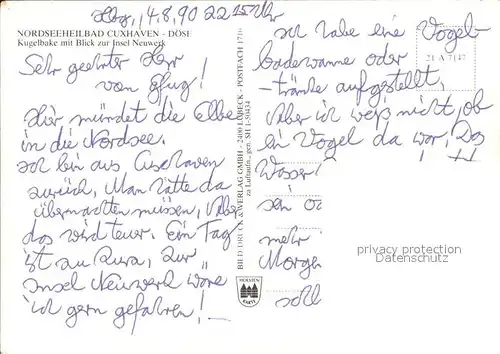 Hbg, 14.8.90 22 15 Uhr
NORDSEEHEILBAD CUXHAVEN - DÖSE
Kugelbake mit Blick zur Insel Neuwerk
Sehr geehrter Herr
von
Hier mündet die Elbe
in die Nordsee.
Ich bin aus Cuxhaven
zurück, Man hätte da
übernachten müssen, Aber
das wird teuer. Ein Tag
ist zu kurz, zur
Insel Neuwerk wäre
ich gern gefahren!
BILD-DRUCK & VERLAG GMBH - 2400 LÜBECK - POSTFACH 1716
zu Luftaufn. gen. SH I-50434
HOLSTEN
KARTE
ich habe eine Vogel-
badewanne oder
-tränke aufgestellt,
21 A 7147
Aber ich weiß nicht, ob
ein Vogel da war! Das
Wasser
sen
mehr
Morgen
soll
privacy protection
Datenschutz